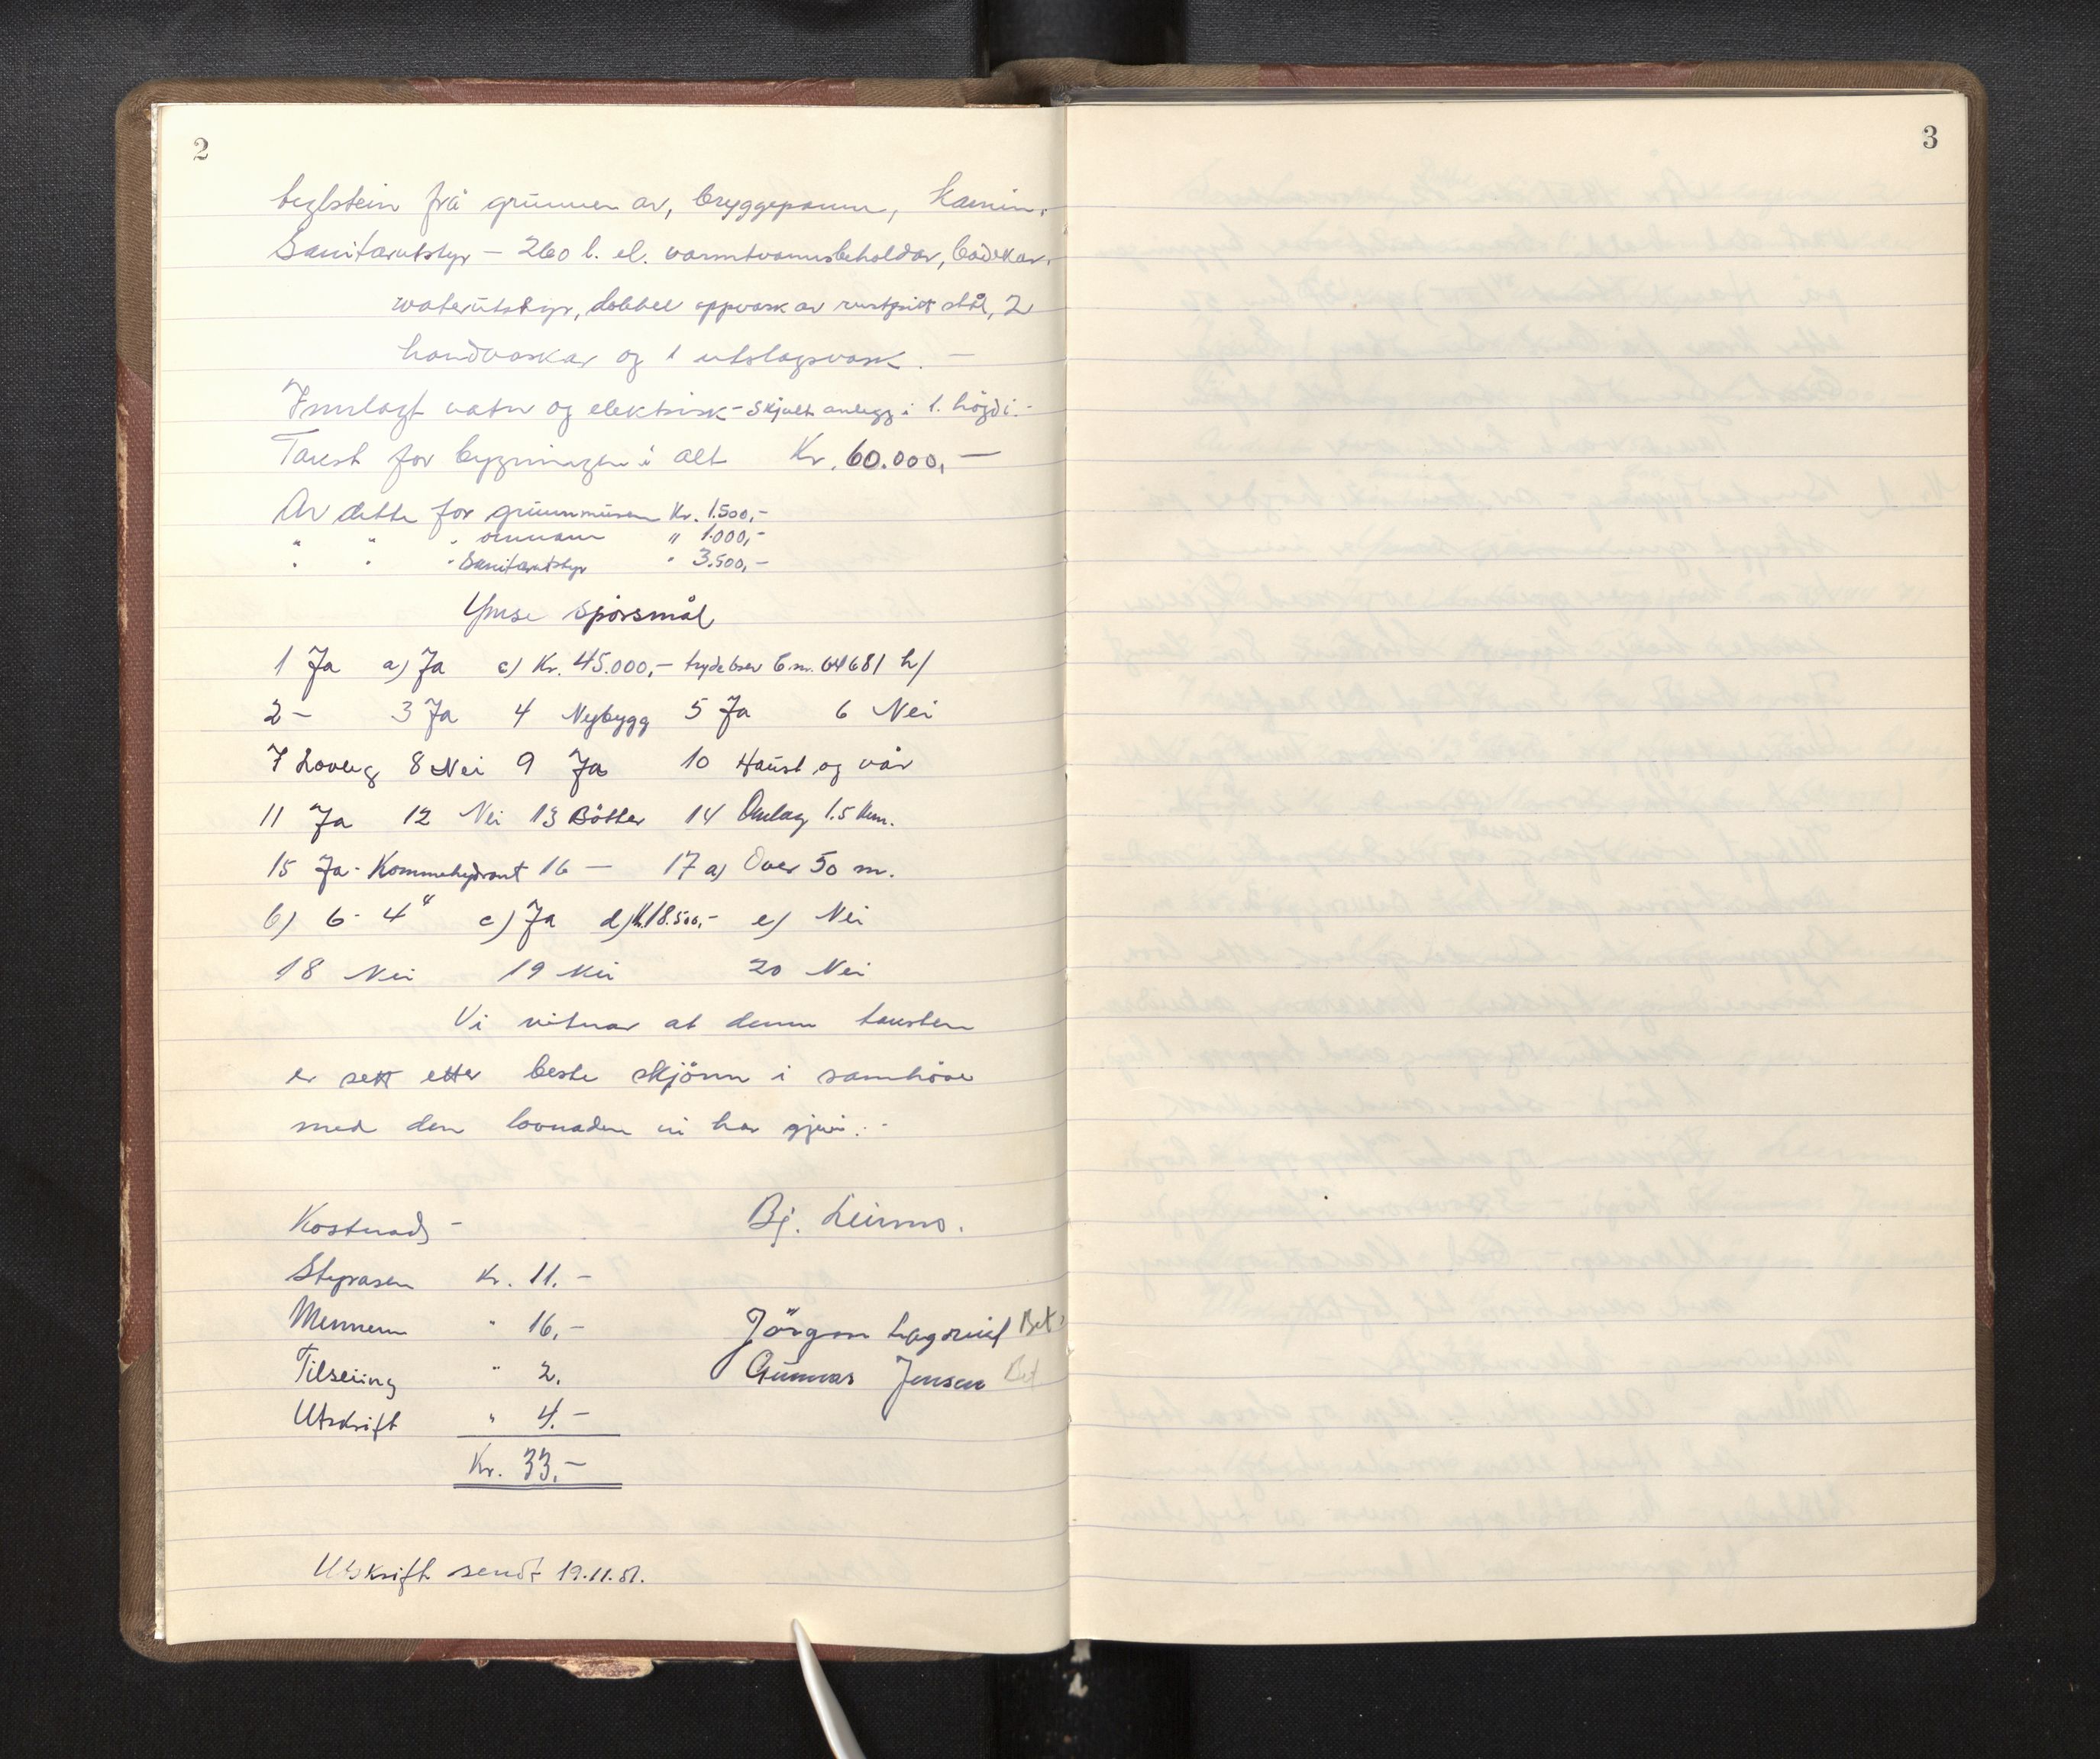 2
teglstein frå grunnen av, bryggepanne, kamin.
Sanitærutstyr - 260 l. el. varmtvannsbeholdar, badekar,
waterutstyr, dobbel oppvask av rustfritt stål, 2
handvaskar og 1 utslagsvask. -
Innlagt vatn og elektrisk - skjult anlegg i 1. högdi. -
Takst for bygningen i alt Kr. 60.000,-
Av dette for grunnmuren Kr. 1.500,-
" " " omnane " 1.000,-
" " " Sanitærutstyr " 3.500,-
Ymse spörsmål
1 Ja a) Ja c) Kr. 45.000,- trydebrev 6.m. 64681 h/
2 - 3 Ja 4 Nybygg 5 Ja 6 Nei
7 Lovleg 8 Nei 9 Ja 10 Haust og vår
11 Ja 12 Nei 13 Bötter 14 Omlag 1.5 km.
15 Ja - Kommehydrant 16 - 17 a) Over 50 m.
b) 6 - 4" c) Ja d) Kr. 18.500,- e) Nei
18 Nei 19 Nei 20 Nei
Vi vitnar at denne taksten
er sett etter beste skjönn i samhöve
med den lovnaden vi har gjevi. -
Kostnad - Bj. Leirmo.
Styraren Kr. 11.-
Mennene " 16,- Jörgen Lagreid Bet
Tilseiing " 2. Gunnar Jensen Bet
Utskrift " 4.-
Kr. 33,-
Utskrift sendt 19.11.51.
3